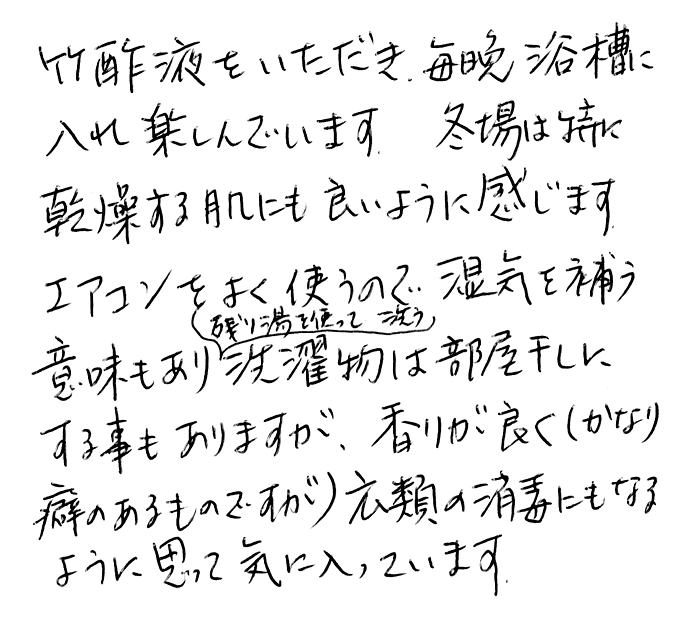 竹酢液をいただき、毎晩浴槽に
入れ楽しんでいます。冬場は特に
乾燥する肌にも良いように感じます。
エアコンをよく使うので、湿気を補う
残り湯を使って洗う
意味もあり洗濯物は部屋干しに
する事もありますが、香りが良く(かなり
癖のあるものですが)衣類の消毒にもなる
ように思って気に入っています。